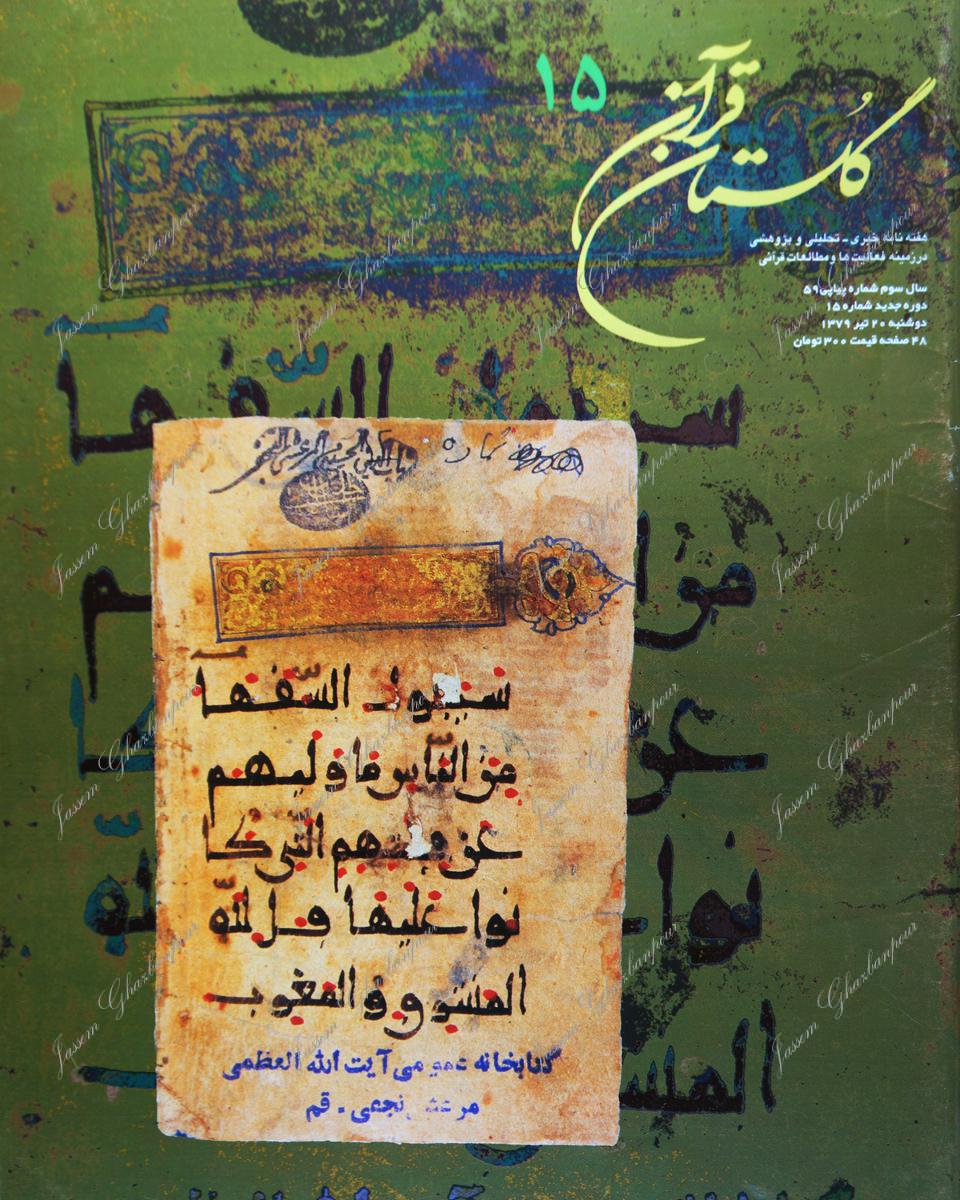 ۱۵
گلستان قرآن
هفته نامه خبری - تحلیلی و پژوهشی
در زمینه فعالیت ها و مطالعات قرآنی
سال سوم شماره پیاپی ۵۹
دوره جدید شماره ۱۵
دوشنبه ۲۰ تیر ۱۳۷۹
۴۸ صفحه قیمت ۳۰۰ تومان
شماره
سَيَقُولُ السُّفَهَا
مِنَ النَّاسِ مَا وَلَّيهُم
عَن قِبْلَتِهِمُ الَّتِي كَا
نُوا عَلَيْهَا قُل لِلَّهِ
المَشْرِقُ وَالمَغْرِبُ
کتابخانه عمومی آیت الله العظمی
مرعشی نجفی - قم
Jassem Ghazbanpour